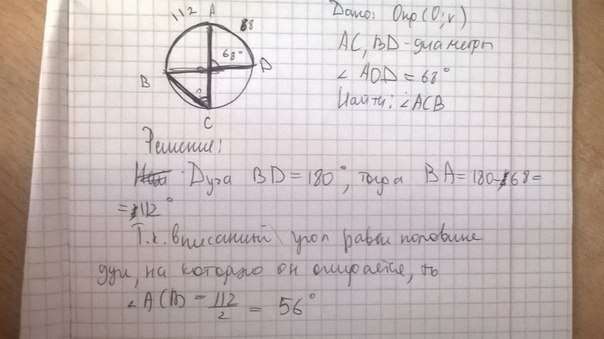 112 A 68
68°
B D
C
Дано: Окр (O; r)
AC, BD - диаметры
∠ AOD = 68°
Найти: ∠ACB
Решение:
Дуга BD = 180°, тогда BA = 180-68=
= 112°
Т.к. вписанный угол равен половине
дуги, на которую он опирается, то
∠ ACB = 112/2 = 56°